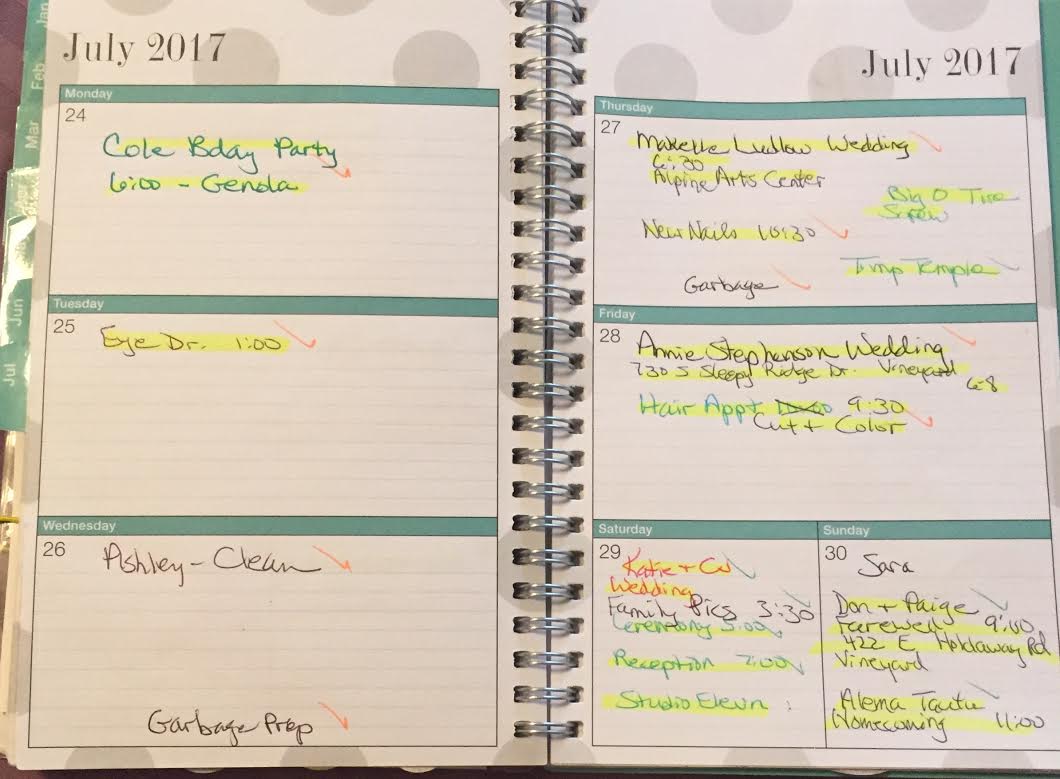 Jan
Feb
Mar
Jun
Jul
July 2017
Monday
24
Cole Bday Party
6:00 - Genola
Tuesday
25
Eye Dr. 1:00
Wednesday
26
Ashley - Clean
Garbage Prep
July 2017
Thursday
27
Ludlow Wedding
6:30
Alpine Arts Center
Big O Tire
Screw
New Nails 10:30
Timp Temple
Garbage
Friday
28
Annie Stephenson Wedding
730 S Sleepy Ridge Dr. Vineyard
6-8
Hair Appt 9:30
Cut + Color
Saturday
29
Katie + CJ
Wedding
Family Pics 3:30
Ceremony 5:00
Reception 7:00
Studio Eleven
Sunday
30
Sara
Don + Paige
Farewell 9:00
422 E Holdaway Rd
Vineyard
Alema
Homecoming 11:00